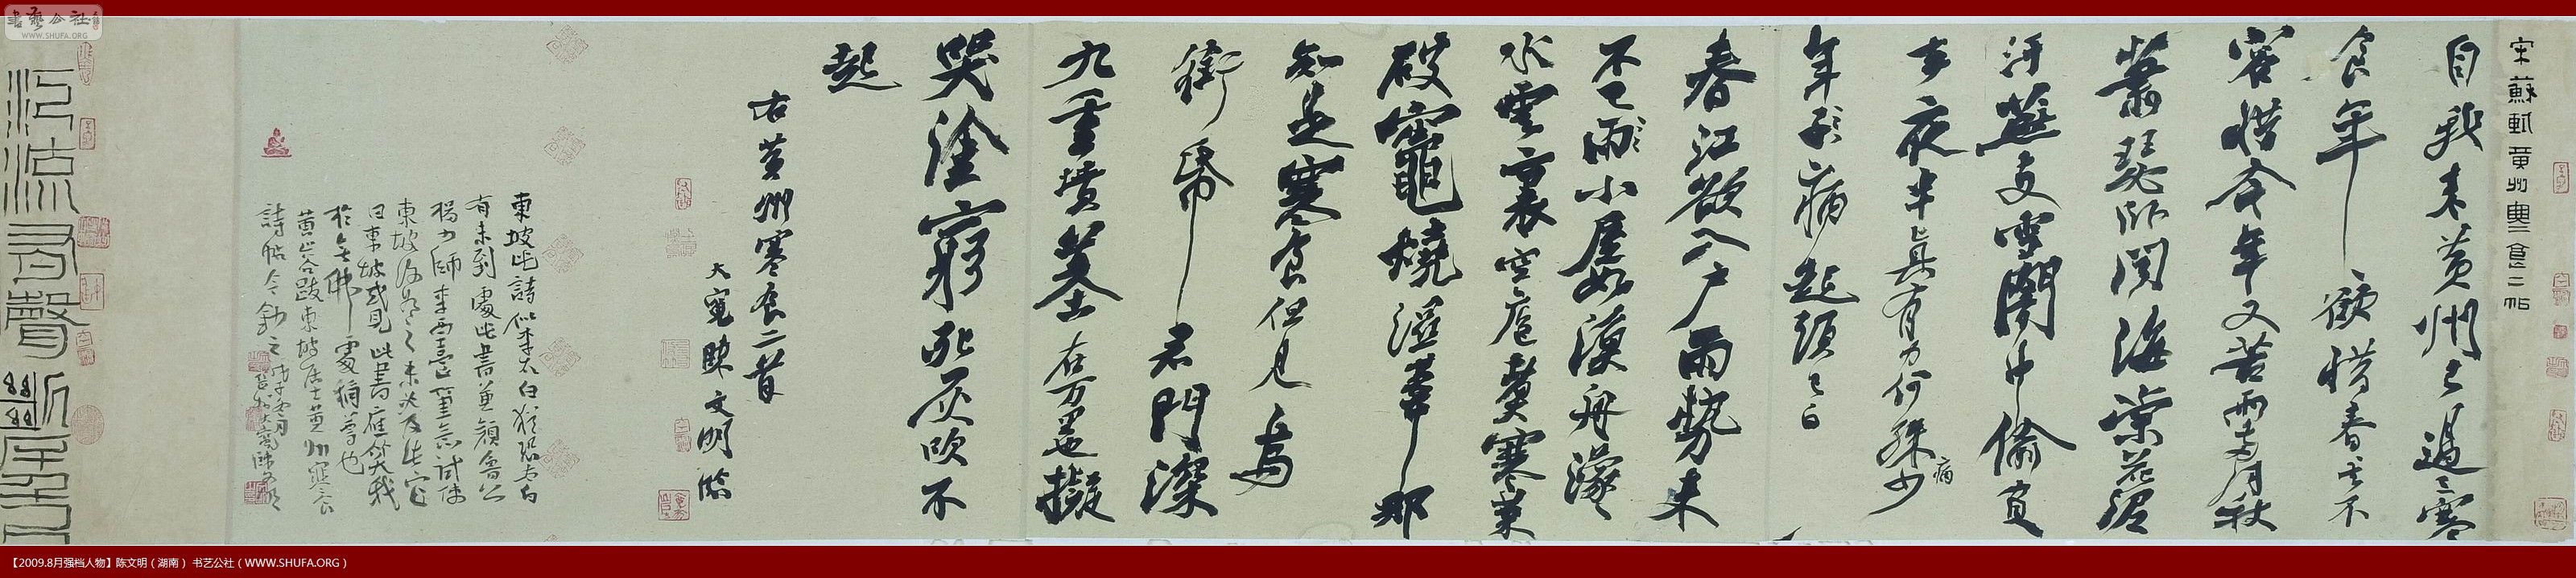 宋蘇軾黄州寒食二帖
自我来黄州已過三寒
食年年欲惜春春去不
容惜今年又苦雨兩月秋
蕭瑟卧聞海棠花泥
汙燕支雪闇中偷負
去夜半真有力何殊少
病
年子病起頭已白
春江欲入户雨勢来
不已雨小屋如漁舟濛濛
水雲裏空庖煮寒菜
破竈燒溼葦那
知是寒食但見烏
銜帋君門深
九重墳墓在万里也擬
哭塗窮死灰吹不
起
右黄州寒食二首
大寬陳文明臨
東坡此詩似李太白猶恐太白
有未到處此書兼顔魯公
楊少師李西臺筆意試使
東坡復為之未必及此它
日東坡或見此書應笑我
於無佛處稱尊也
黄山谷跋東坡居士黄州寒食
詩帖今録之
江流有聲斷岸千尺
書藝公社
WWW.SHUFA.ORG
【2009.8月强档人物】陈文明（湖南） 书艺公社（WWW.SHUFA.ORG）